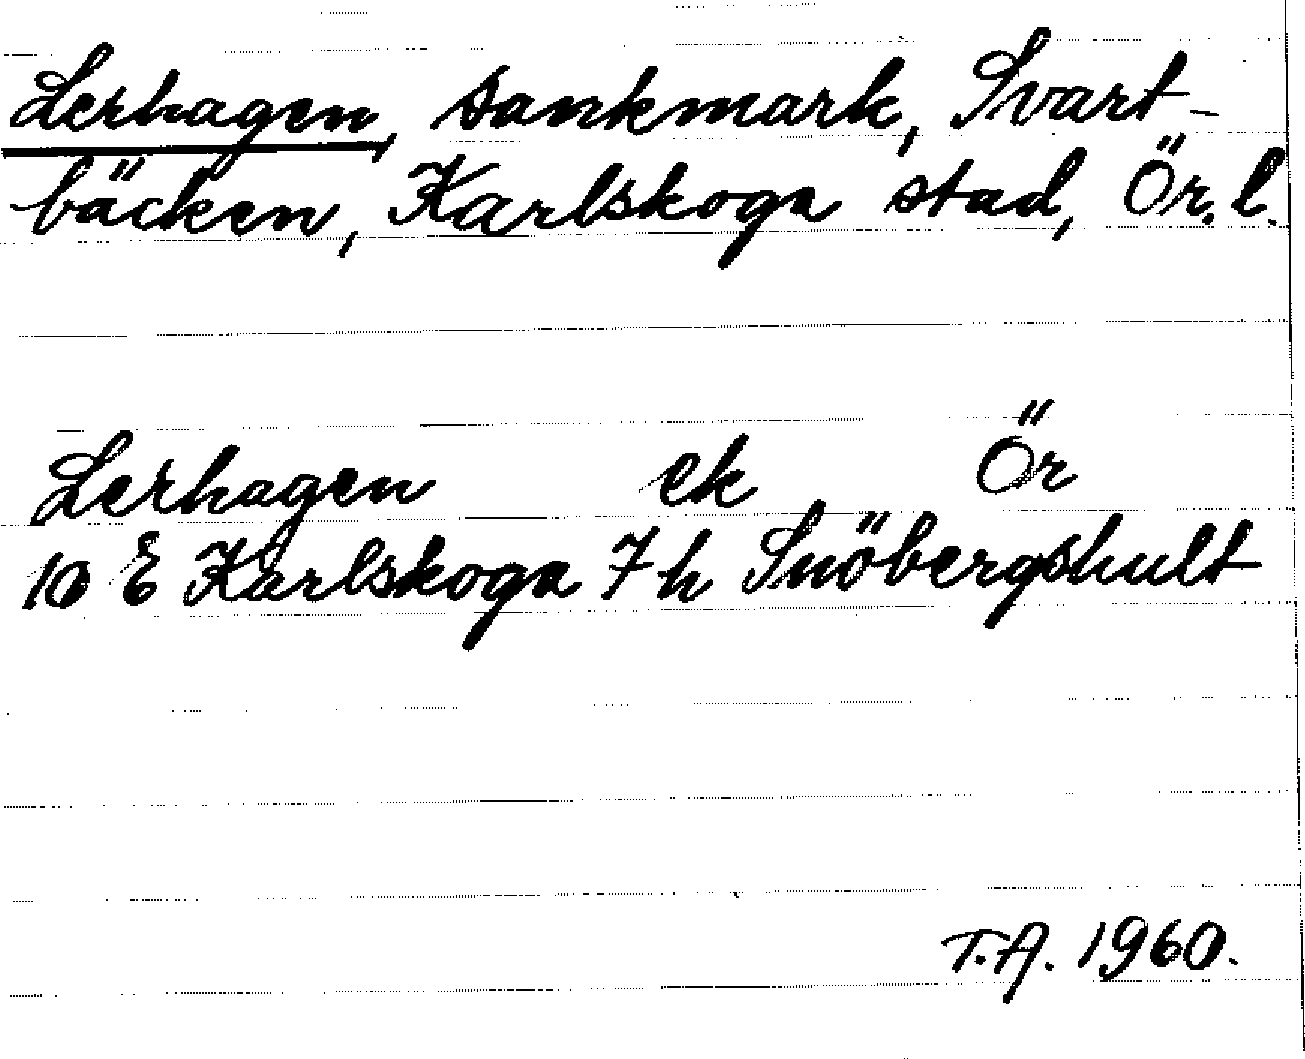 Lerhagen, sankmark, Svart-
bäcken, Karlskoga stad, Ör. l.
Lerhagen ek Ör
10 E Karlskoga 7 h Snöbergshult
T.A. 1960.